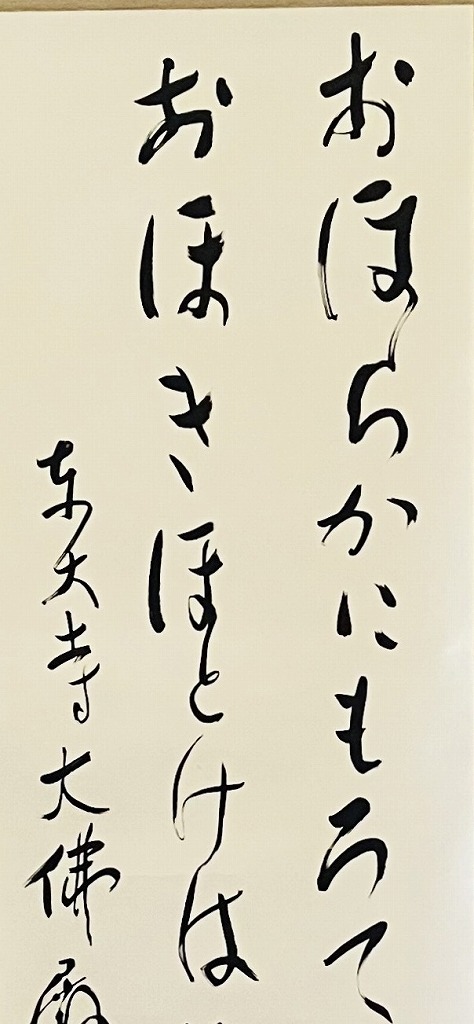 おほらかにもろて
おほきほとけは
东大寺大佛殿